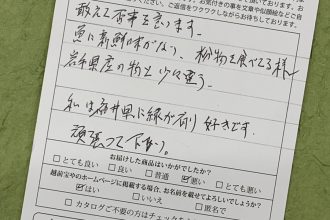 お気付きの事を文章や似顔絵などご自
ご返信をワクワクしながらお待ちしております。
敢えて苦事を言います。
魚に新鮮味がなり、粉物を食べてる様
岩手県産の物と少々違う。
私は福井県に縁が有り好きです。
頑張って下さい。
お届けした商品はいかがでしたか？
□とても良い □良い □普通 ☑悪い □とても悪い
越前宝やのホームページに掲載する場合、お名前を載せてよろしいでしょうか？
☑はい □いいえ □匿名で
□カタログご不要の方はチェックを